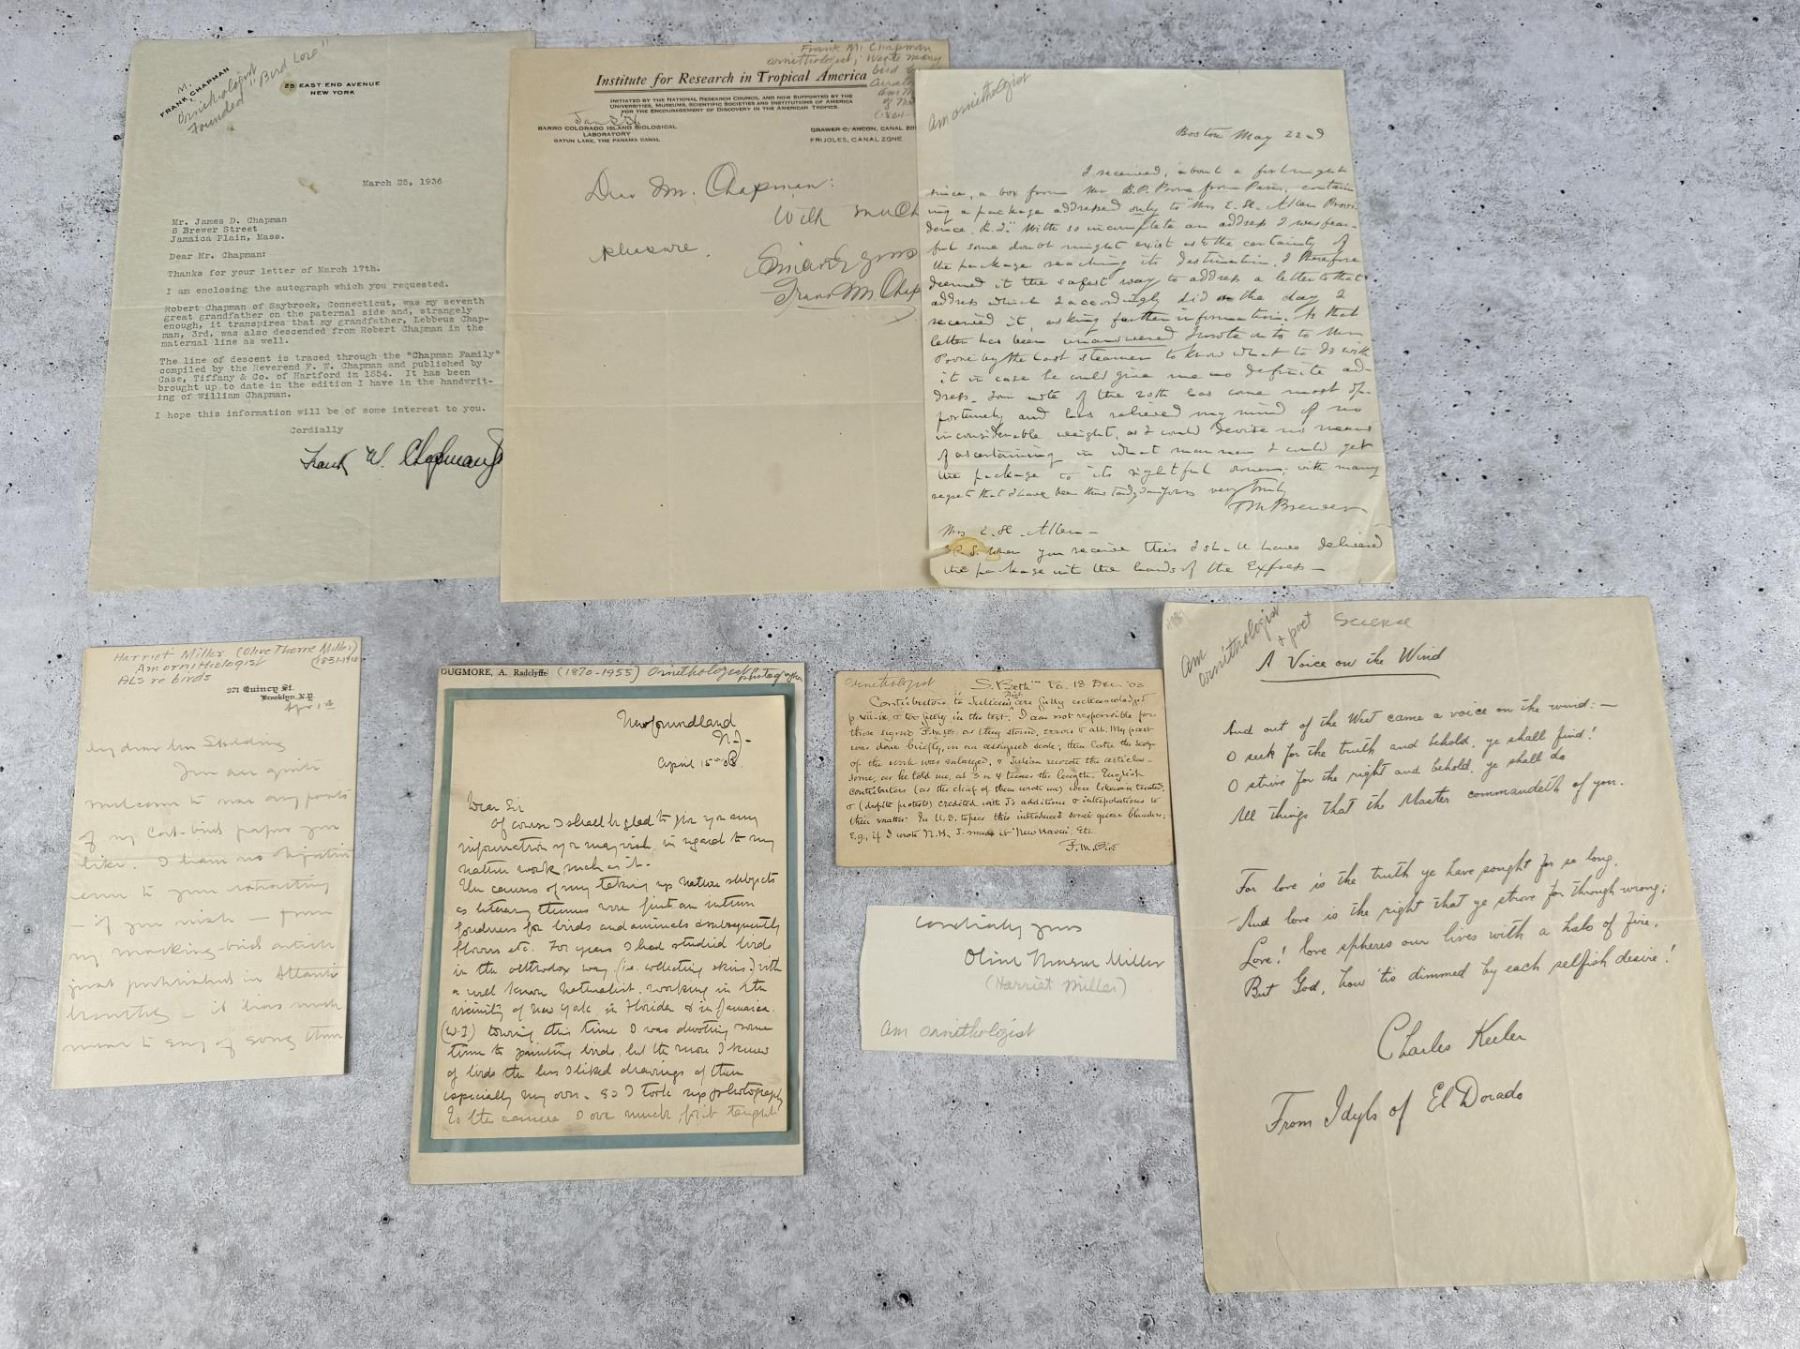 M.
FRANK CHAPMAN
Ornithologist
Founded "Bird Lore"
25 EAST END AVENUE
NEW YORK
March 25, 1936
Mr. James D. Chapman
8 Brewer Street
Jamaica Plain, Mass.
Dear Mr. Chapman:
Thanks for your letter of March 17th.
I am enclosing the autograph which you requested.
Robert Chapman of Saybrook, Connecticut, was my seventh
great grandfather on the paternal side and, strangely
enough, it transpires that my grandfather, Lebbeus Chap-
man, 3rd, was also descended from Robert Chapman in the
maternal line as well.
The line of descent is traced through the "Chapman Family"
compiled by the Reverend F. W. Chapman and published by
Case, Tiffany & Co. of Hartford in 1854. It has been
brought up to date in the edition I have in the handwrit-
ing of William Chapman.
I hope this information will be of some interest to you.
Cordially
Frank W. Chapman
Frank M. Chapman
ornithologist; Wrote many
bird
Institute for Research in Tropical America
INITIATED BY THE NATIONAL RESEARCH COUNCIL AND NOW SUPPORTED BY THE
UNIVERSITIES, MUSEUMS, SCIENTIFIC SOCIETIES AND INSTITUTIONS OF AMERICA
FOR THE ENCOURAGEMENT OF DISCOVERY IN THE AMERICAN TROPICS.
BARRO COLORADO ISLAND BIOLOGICAL
LABORATORY
GATUN LAKE, THE PANAMA CANAL
DRAWER C, ANCON, CANAL
FRIJOLES, CANAL ZONE
Dear Mr. Chapman:
With much
pleasure.
Sincerely yours
Frank M Chap
Am ornithologist
Boston May 22nd
I received, about a fortnight
since, a box from Mr from Paris, contain
ing a package addressed only to "Mrs E. H. Allen Provi
dence. R.I." With so incomplete an address I was fear-
ful some doubt might exist as to the certainty of
the package reaching its destination. I therefore
deemed it the safest way to address a letter to that
address which I accordingly did on the day I
received it, asking further information. As that
letter has been unanswered I wrote to
by the last steamer to know what to do with
it in case he could give me no definite ad-
dress. Your note of the 20th has come most op-
portunely and has relieved my mind of no
inconsiderable weight, as I could devise no means
of ascertaining in what manner I could get
the package to its rightful owner; with many
regret that I have been thus tardy I am yours very truly
T M Brewer
Mrs E. H. Allen—
P.S. When you receive this I shall have delivered
the package into the hands of the Express—
Harriet Miller (Olive Thorne Miller)
Am ornithologist
ALS re birds
271 Quincy St.
Brooklyn, N.Y.
Apr 1st
My dear Mr Spalding
You are quite
welcome to use any parts
of my Cat-bird paper you
like. I have no objection
to your extracting
— if you wish — from
my mocking-bird article
just published in Atlantic
DUGMORE, A. Radclyffe (1870-1955) Ornithologist
Newfoundland
N.J.
April 15th
Dear Sir
Of course I shall be glad to give you any
information you may wish in regard to my
nature work such as it is.
The causes of my taking up nature subjects
as literary themes were first an intense
fondness for birds and animals & subsequently
flowers etc. For years I had studied birds
in the orthodox way (i.e. collecting skins) with
a well known naturalist, working in the
vicinity of New York, in Florida & in Jamaica
(W.I.) During this time I was devoting some
time to painting birds, but the more I knew
of birds the less I liked drawings of them
especially my own. So I took up photography
To the camera I owe much, first taught
Ornithologist
18 Dec.
Contributors to are fully acknowledged
in the text. I am not responsible for
those signed as they stand, errors & all. My part
was done briefly, on an assigned scale; then later the scope
of the work was enlarged, & rewrote the articles
some, as he told me, at 3 or 4 times the length. English
contributors (as the chief of them wrote me) were likewise treated,
& (despite protests) credited with J's additions & interpolations to
their matter. In U.S. topics this introduced some queer blunders;
E.g., if I wrote N.H., J. made it 'New Haven', Etc.
Cordially yours
Olive Thorne Miller
(Harriet Miller)
Am ornithologist
Am
ornithologist
+ poet
Science
A Voice on the Wind
And out of the West came a voice on the wind:—
O seek for the truth and behold, ye shall find!
O strive for the right and behold, ye shall do
All things that the Master commandeth of you.
For love is the truth ye have sought for so long,
And love is the right that ye strove for through wrong;
Love! love spheres our lives with a halo of fire,
But God, how 'tis dimmed by each selfish desire!
Charles Keeler
From Idyls of El Dorado